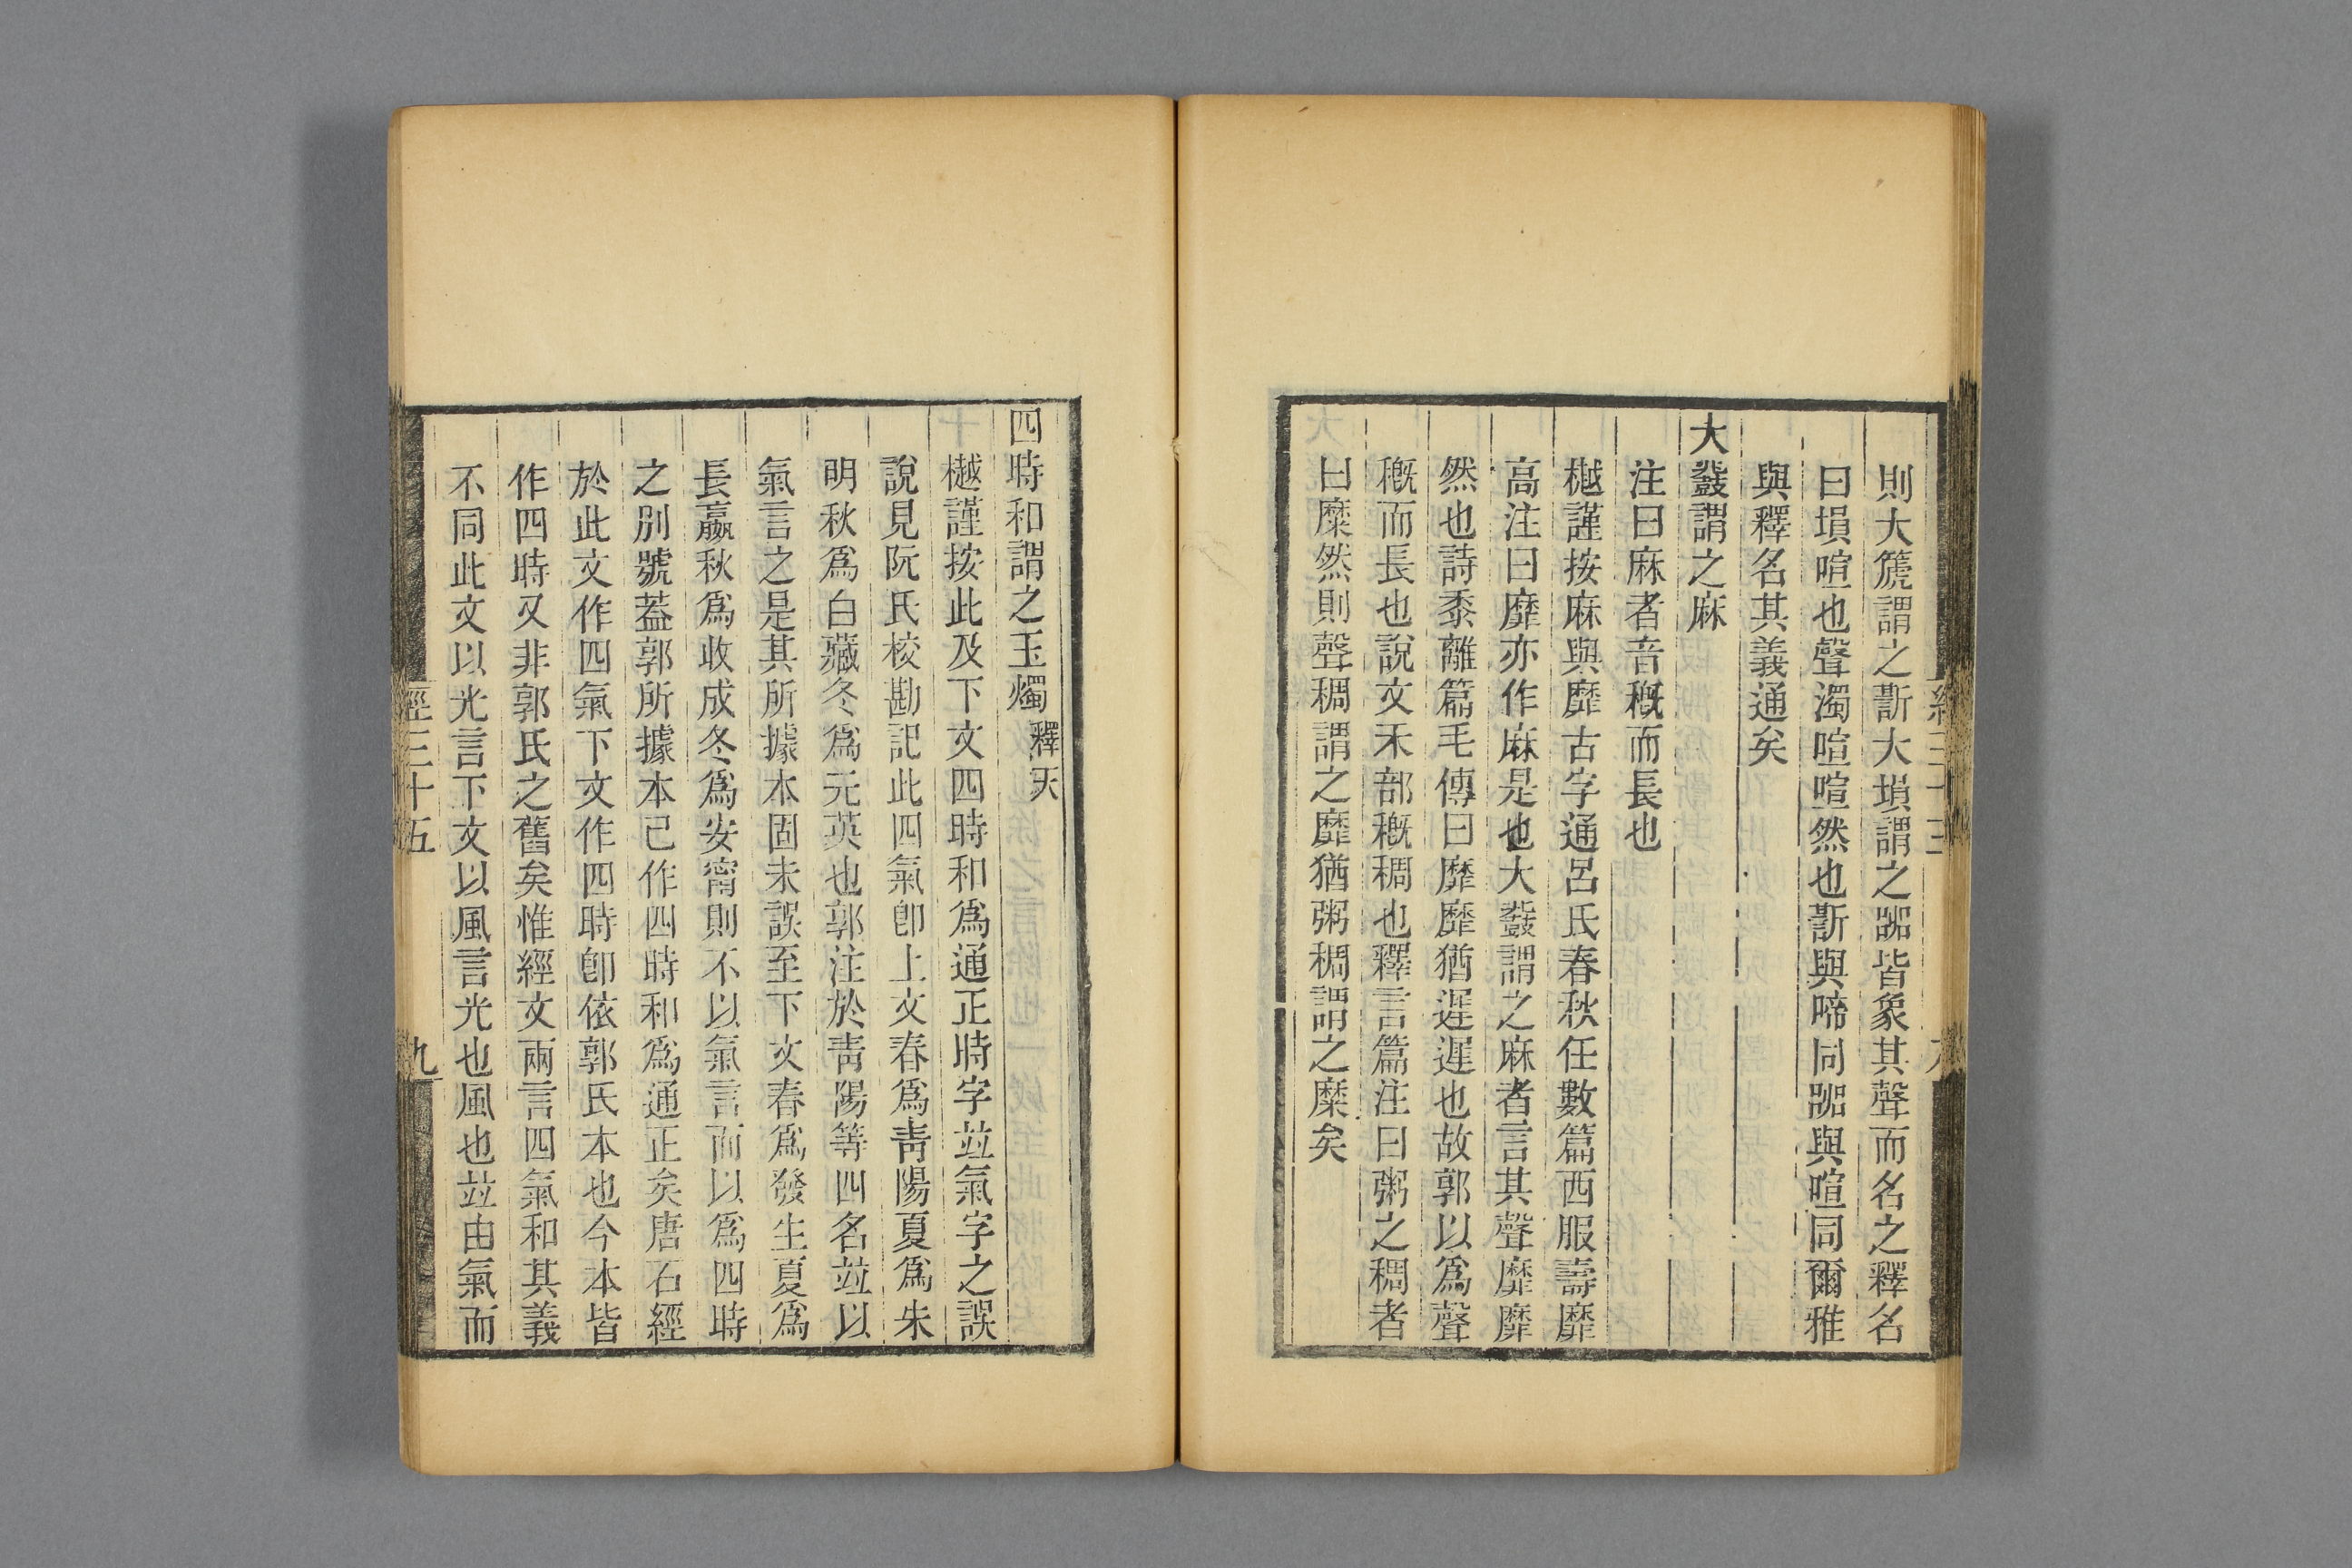 則大篪謂之䜣大塤謂之𠱥皆象其聲而名之釋名
曰塤喧也聲濁喧喧然也䜣與啼同𠱥與喧同爾雅
與釋名其義通矣
大鼗謂之麻
注曰麻者音穊而長也
樾謹按麻與靡古字通呂氏春秋任數篇西服壽靡
高注曰靡亦作麻是也大鼗謂之麻者言其聲靡靡
然也詩黍離篇毛傳曰靡靡猶遲遲也故郭以爲聲
穊而長也說文禾部穊稠也釋言篇注曰粥之稠者
曰糜然則聲稠謂之靡猶粥稠謂之糜矣
四時和謂之玉燭 釋天
樾謹按此及下文四時和爲通正時字竝氣字之誤
說見阮氏校勘記此四氣卽上文春爲靑陽夏爲朱
明秋爲白藏冬爲元英也郭注於靑陽等四名竝以
氣言之是其所據本固未誤至下文春爲發生夏爲
長嬴秋爲收成冬爲安甯則不以氣言而以爲四時
之別號葢郭所據本已作四時和爲通正矣唐石經
於此文作四氣下文作四時卽依郭氏本也今本皆
作四時又非郭氏之舊矣惟經文兩言四氣和其義
不同此文以光言下文以風言光也風也竝由氣而
經三十五
九